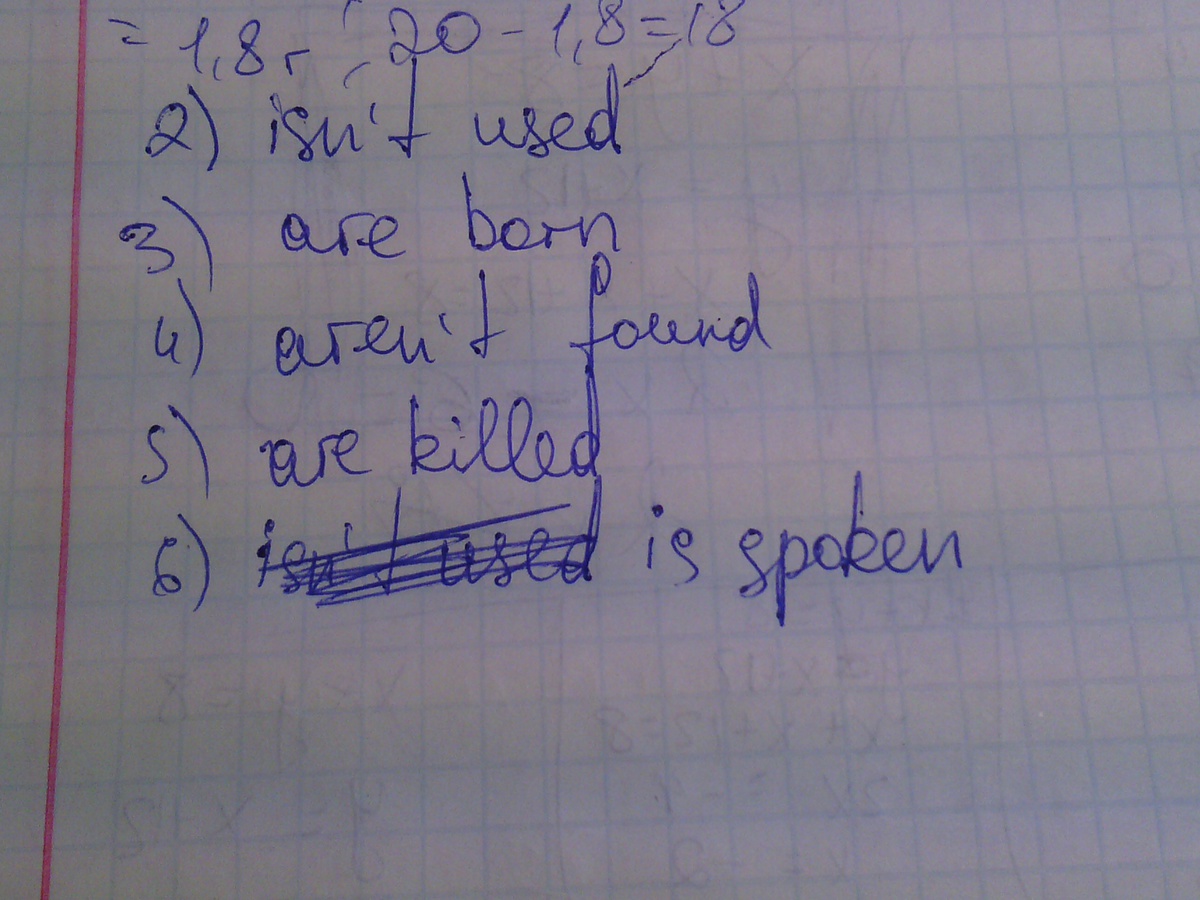 = 1,8г 20 - 1,8 = 18
2) isn't used
3) are born
4) aren't found
5) are killed
6) is spoken